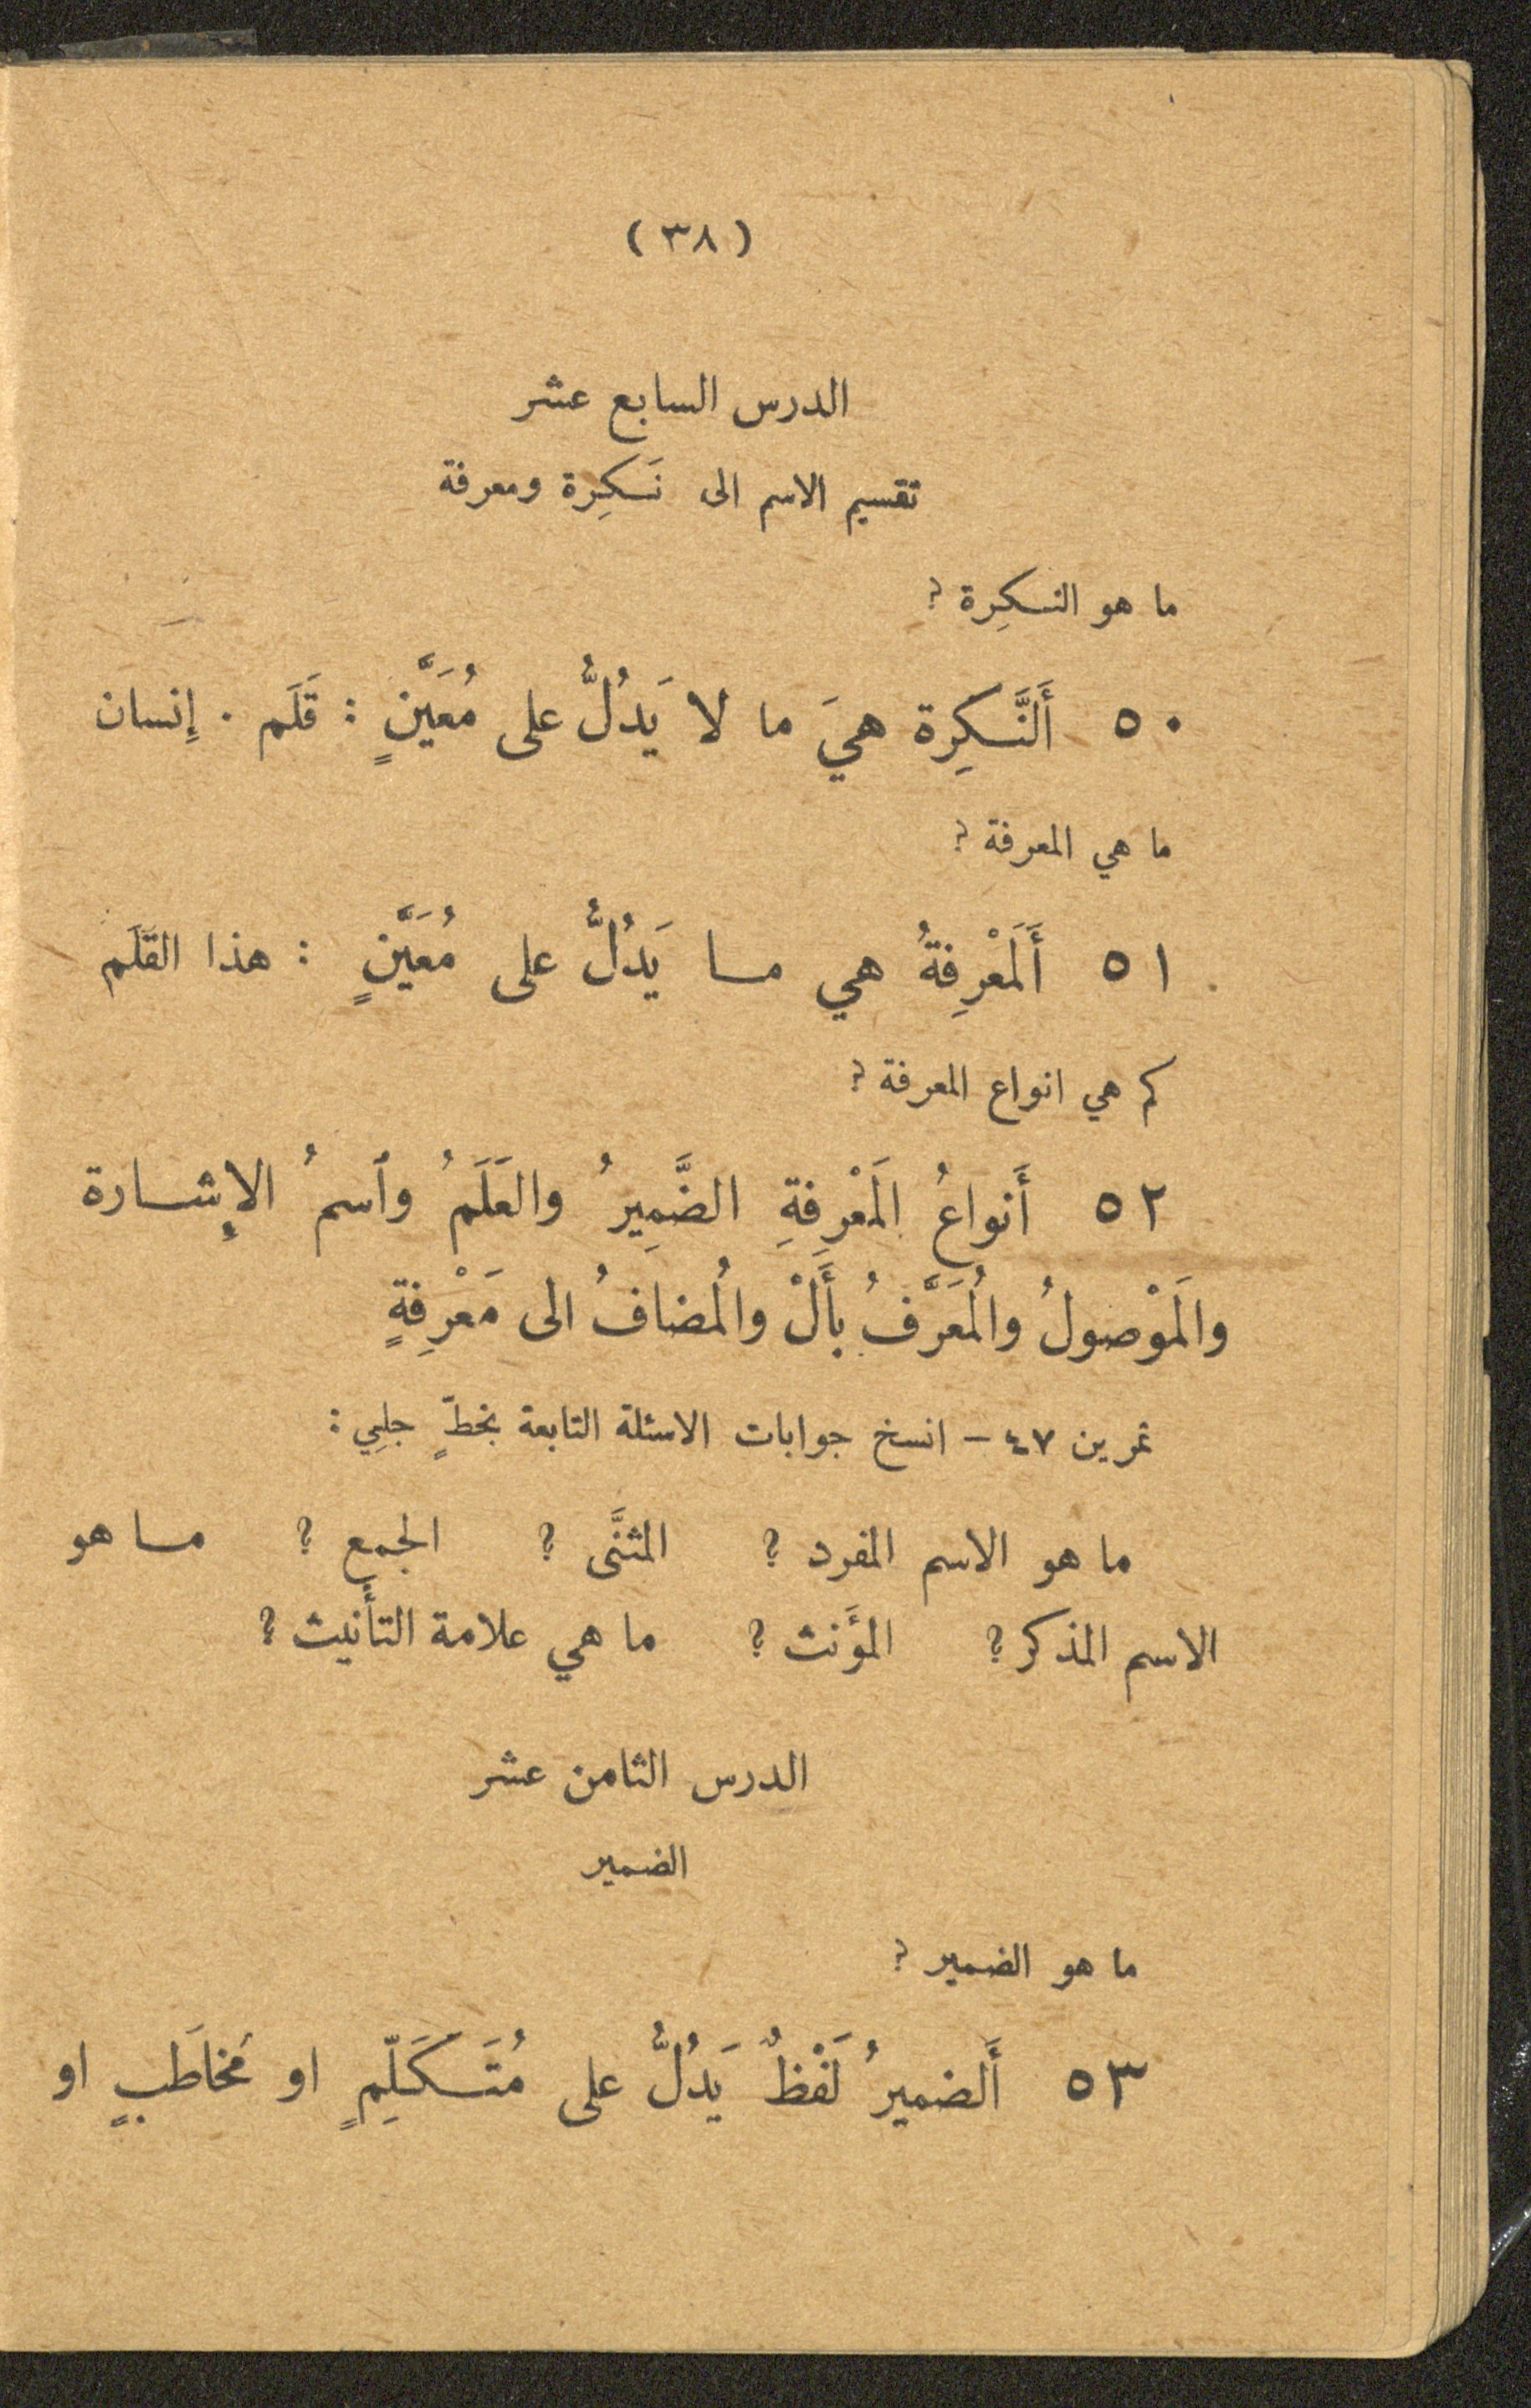 (٣٨)
الدرس السابع عشر
تقسيم الاسم الى نَكِرة ومعرفة
ما هو النكِرة ؟
٥٠ أَلنَّكِرة هيَ ما لا يَدُلُّ على مُعَيَّنٍ : قَلَم . إِنسان
ما هي المعرفة ؟
٥١ أَلَمْعْرِفةُ هي ما يَدُلُّ على مُعَيَّنٍ : هذا القَلَم
كم هي انواع المعرفة ؟
٥٢ أَنواعُ المَعْرِفةِ الضَّمِيرُ والعَلَمُ وٱسمُ الإِشارة
والمَوْصولُ والمُعَرَّفُ بأَلْ والمُضافُ الى مَعْرِفةٍ
تمرين ٤٧ – انسخ جوابات الاسئلة التابعة بخطٍّ جليي :
ما هو الاسم المفرد ؟ المثنَّى ؟ الجمع ؟ ما هو
الاسم المذكر ؟ المؤَنث ؟ ما هي علامة التأنيث ؟
الدرس الثامن عشر
الضمير
ما هو الضمير ؟
٥٣ أَلضميرُ لَفْظٌ يَدُلُّ على مُتَكَلِّمٍ او مُخاطَبٍ او